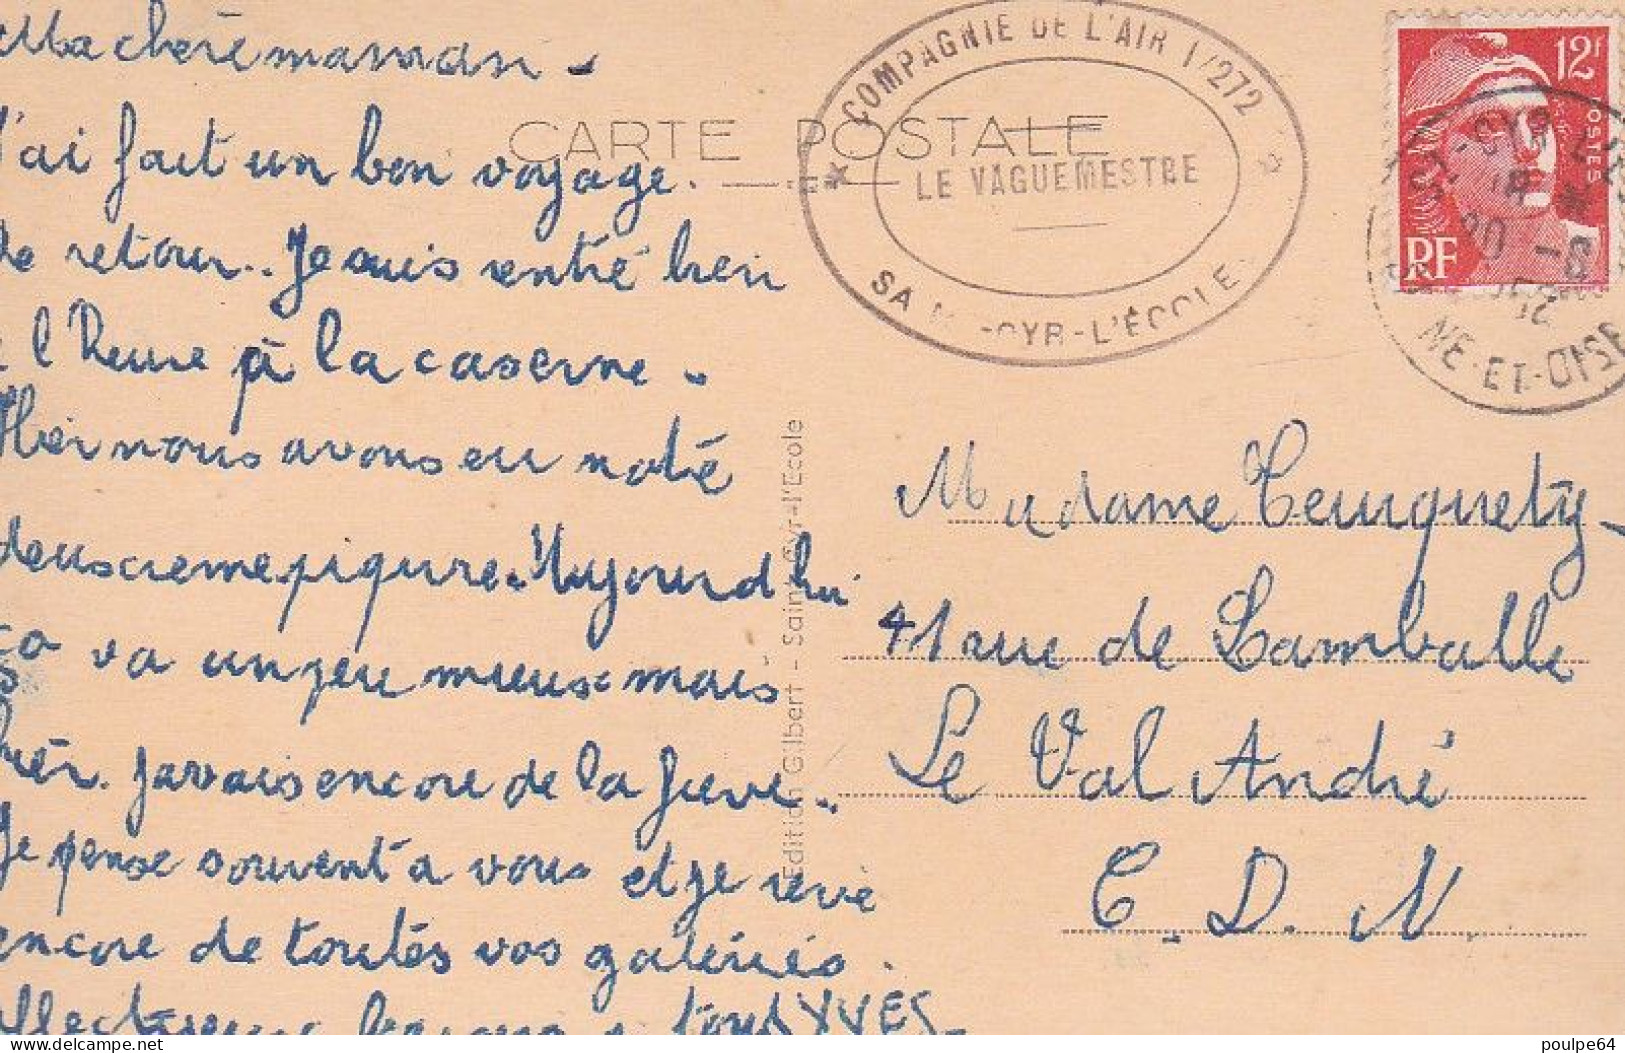 Ma chère maman -
J'ai fait un bon voyage.
de retour.. Je suis rentré bien
l'heure à la caserne -
Hier nous avons eu notre
deuxième piqure. Aujourd'hui
ça va un peu mieux mais
hier. J'avais encore de la fievre..
Je pense souvent a vous et je reve
encore de toutes vos gateries.
YVES
CARTE POSTALE
COMPAGNIE DE L'AIR 1/272
LE VAGUEMESTRE
SAINT-CYR-L'ÉCOLE
12F
POSTES
RF
NE-ET-OISE
Edition Gilbert - Saint-Cyr-l'Ecole
Madame
41 rue de Lamballe
Le Val André
C. D. N.
www.delcampe.net
poulpe64